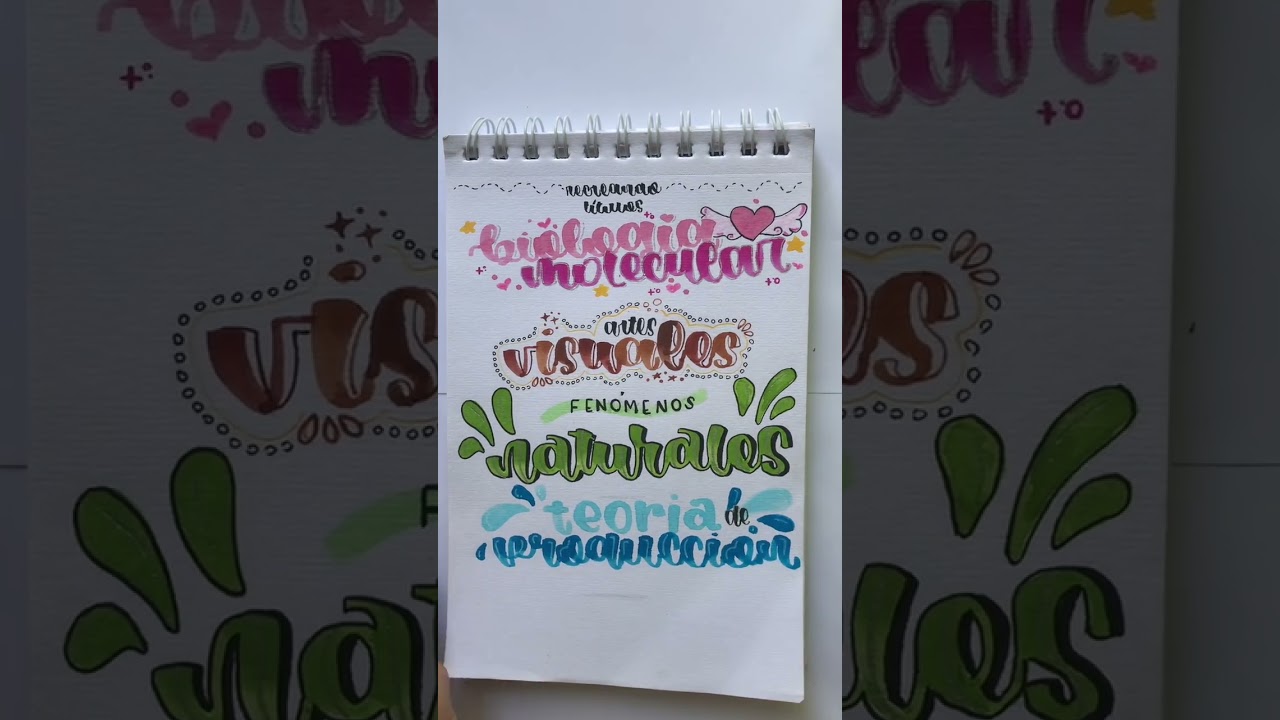 recreando
títulos
biología
molecular
artes
visuales
FENÓMENOS
naturales
teoría de
producción